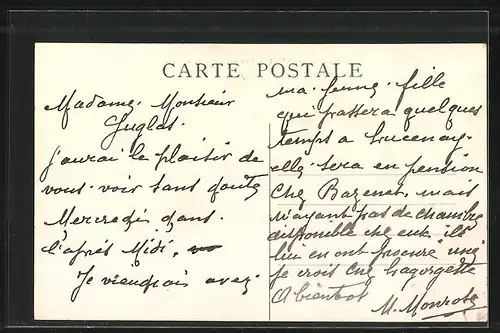 CARTE POSTALE
Madame, Monsieur
J'aurai le plaisir de
vous voir sans doute
Mercredi dans
l'après Midi,
Je viendrais avec
ma jeune fille
qui passera quelques
temps a Lucenay
elle sera en pension
Chez Bazenet, mais
n'ayant pas de chambre
disponible che eux ils
lui en ont procuré une
je crois Chez
A bientot